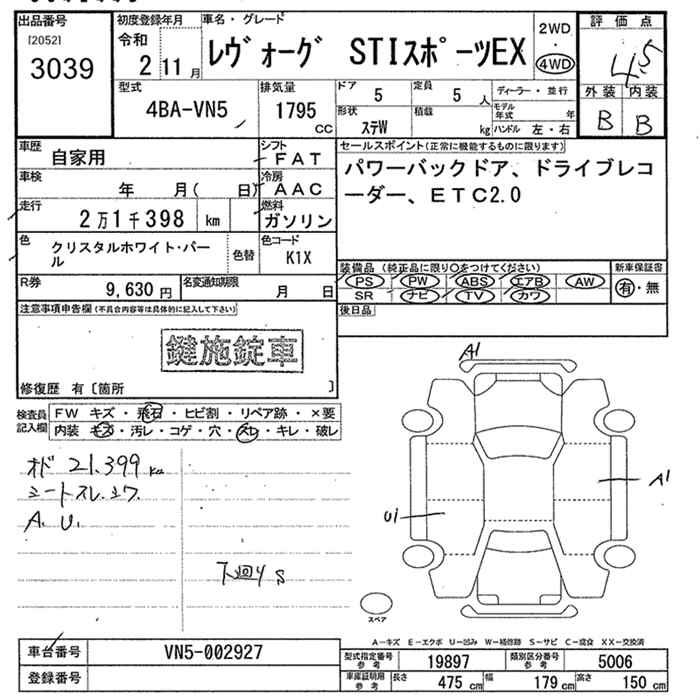 出品番号
[2052]
3039
初度登録年月
令和
2 11月
車名・グレード
レヴォーグ STIスポーツEX
2WD
・
4WD
評価点
4.5
外装 内装
B B
型式
4BA-VN5
排気量
1795
CC
ドア
5
定員
5 人
形状
ステW
積載
kg
ディーラー・並行
モデル年式 年
ハンドル 左・右
車歴
自家用
シフト
FAT
車検
年 月( 日)
冷房
AAC
走行
2万1千398 km
燃料
ガソリン
色
クリスタルホワイト・パール
色替
色コード
K1X
R券
9,630円
名変通知期限
月 日
セールスポイント(正常に機能するものに限ります)
パワーバックドア、ドライブレコ
ーダー、ETC2.0
装備品 (純正品に限り○をつけてください)
PS PW ABS エアB AW
SR ナビ TV カワ
新車保証書
有・無
後日品
注意事項申告欄(不具合内容等は具体的に記入して下さい)
鍵施錠車
修復歴 有〔箇所 〕
検査員記入欄
FW キズ・飛石・ヒビ割・リペア跡・×要
内装 キズ・汚レ・コゲ・穴・スレ・キレ・破レ
オド 21.399 km
シートスレ.シワ.
A. U.
下回り S
A1
A1
U1
スペア
A-キズ E-エクボ U-凹み W-補修跡 S-サビ C-腐食 XX-交換済
車台番号
VN5-002927
登録番号
型式指定番号
参考
19897
類別区分番号
参考
5006
車庫証明用
参考
長さ 475 cm
幅 179 cm
高さ 150 cm